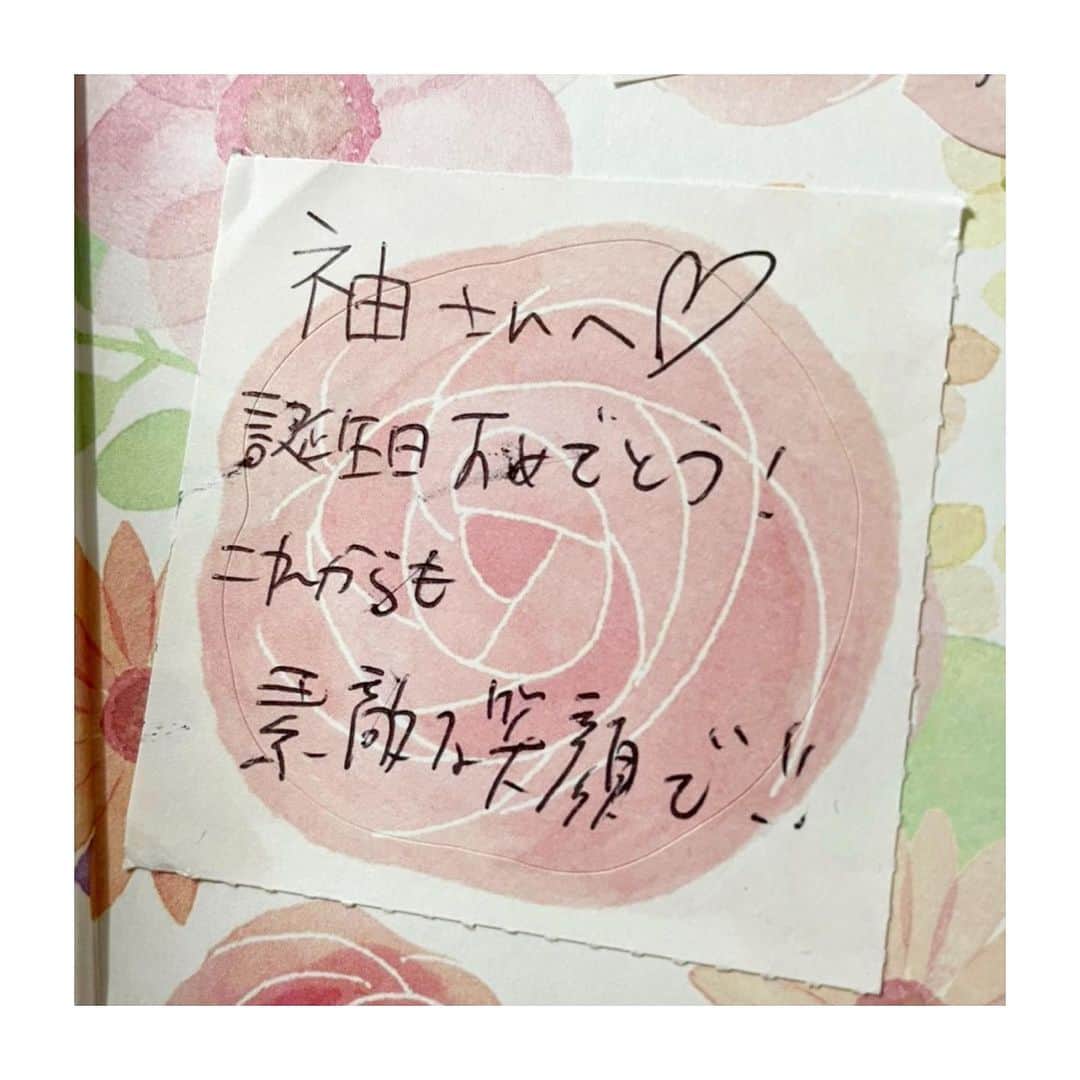 袖さんへ♡
誕生日おめでとう!
これからも
素敵な笑顔で!!